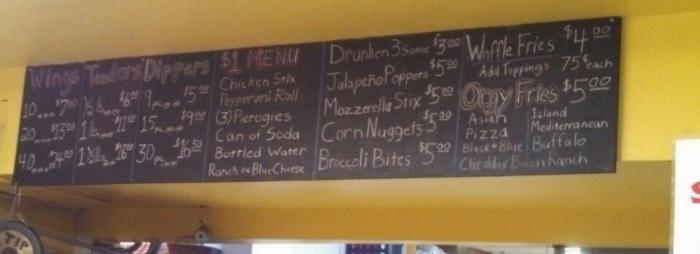 Wings
10...$7.00
20...$13.00
40...$24.00
Tenders
½ lb...$6.00
1 lb...$11.00
1½ lb...$16.00
Dippers
9...$5.00
15...$9.00
30...$16.50
$1 MENU
Chicken Stix
Pepperoni Roll
(3) Pierogies
Can of Soda
Bottled Water
Ranch or Blue Cheese
Drunken 3some $3.00
Jalapeño Poppers $5.00
Mozzerella Stix $5.00
Corn Nuggets $5.00
Broccoli Bites $5.00
Waffle Fries $4.00
Add Toppings 75¢ each
Orgy Fries $5.00
Asian Island
Pizza Mediterranean
Black + Blue Buffalo
Cheddar Bacon Ranch
TIP